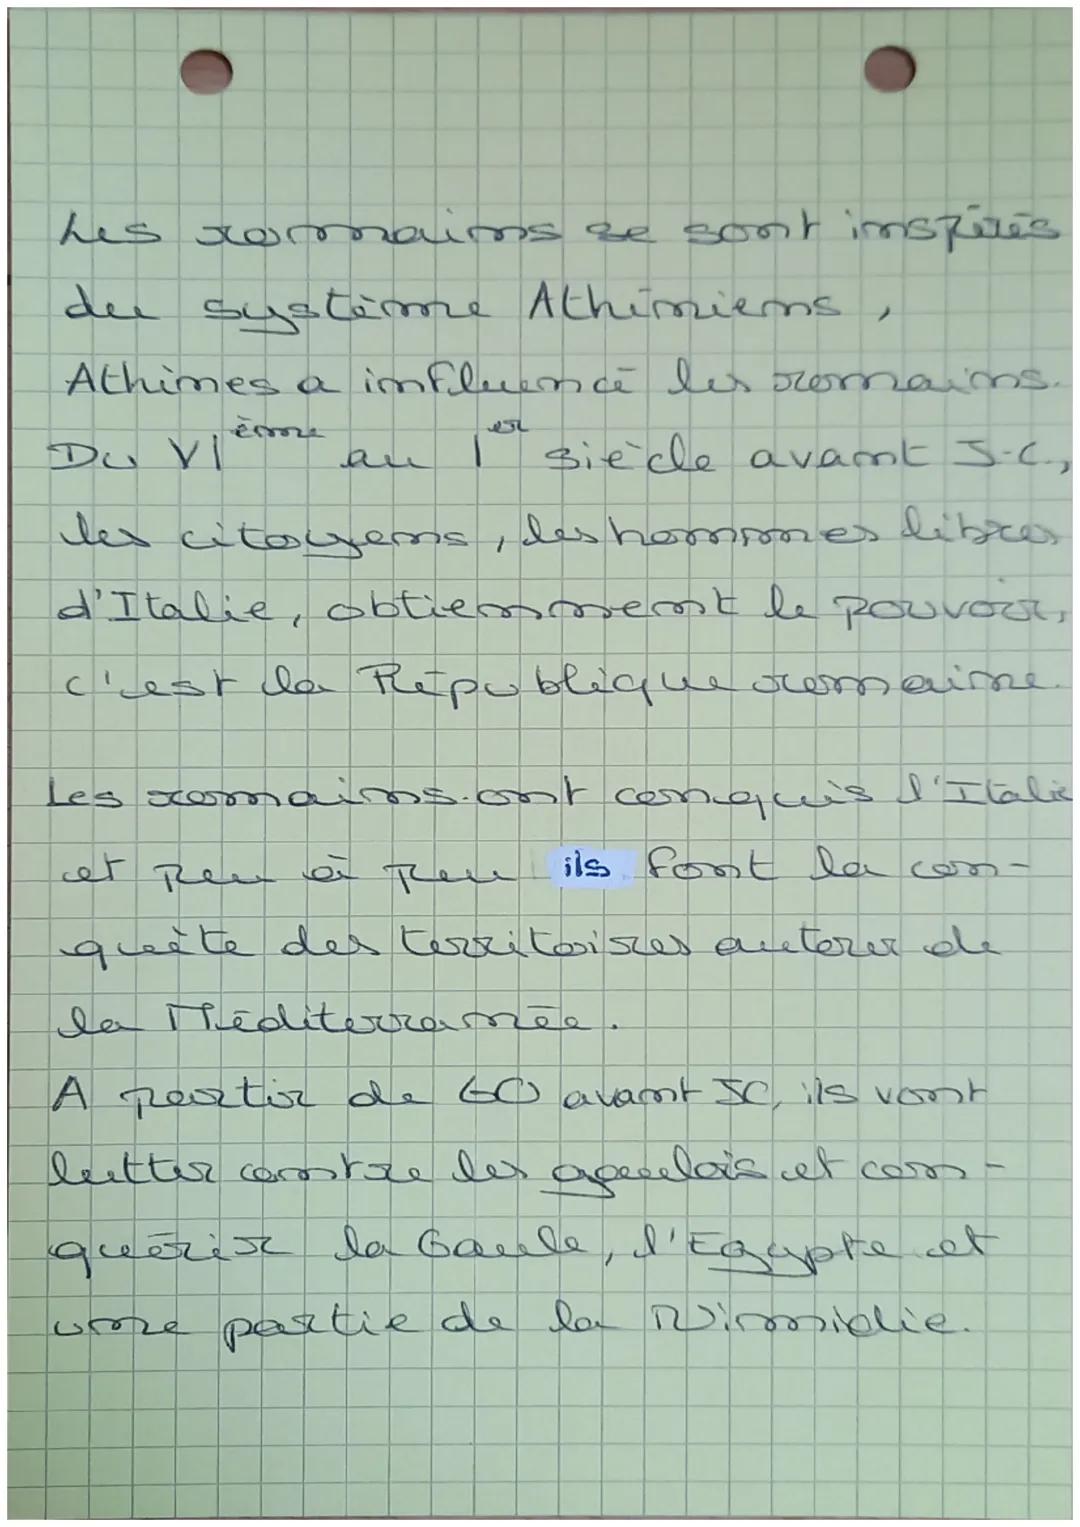 Les romains se sont inspirés
du système Athéniens,
Athènes a influencé les romains.
Du VIème au Ier siècle avant J-C.,
les citoyens, les hommes libres
d'Italie, obtiennent le pouvoir,
c'est la République romaine.
Les romains ont conquis l'Italie
et peu à peu ils font la con-
quête des territoires autour de
la Méditerranée.
A partir de 60 avant JC, ils vont
lutter contre les gaulois et con-
quérir la Gaule, l'Egypte et
une partie de la